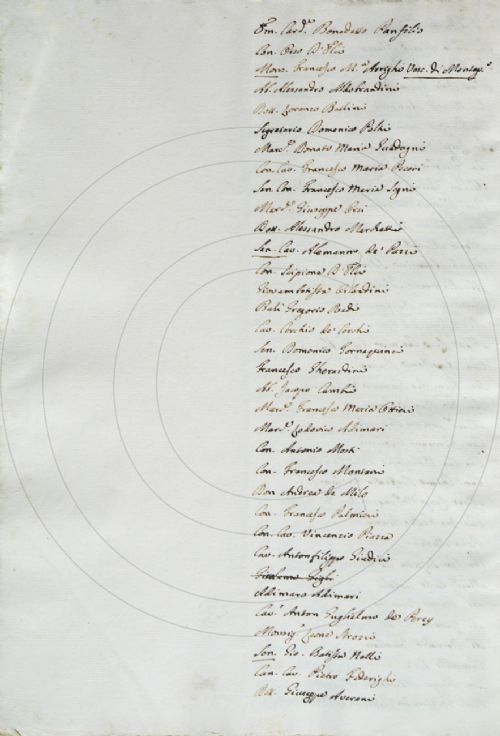 Em. Card.le Benedetto Panfilio
Con. Orso D'Elci
Mons. Francesco M.a Arrighi Vesc. di Montep.o
Ab. Alessandro Aldobrandini
Dott. Lorenzo Bellini
Segretario Domenico
Marc.e Donato Maria Guadagni
Con. Cav. Francesco Maria Pecori
Sen. Con. Francesco Maria Segni
March. Giuseppe Orsi
Dott. Alessandro Marchetti
Sen. Cav. Alamanno de' Pazzi
Con. Scipione D'Elci
Giovambatista Orlandini
Balì Gregorio Redi
Cav. Cerchio de' Cerchi
Sen. Domenico Tornaquinci
Francesco Gherardini
Ab. Jacopo
Marc.e Francesco Maria
March. Lodovico Adimari
Con. Antonio
Con. Francesco Montani
Don Andrea de Milo
Con. Francesco Palmieri
Con. Cav. Vincenzio Piazza
Cav. Antonfilippo Giudici
Girolamo Gigli
Adimaro Adimari
Cav.e Anton Guglielmo de Percy
Monsig.r Leone Strozzi
Sen. Gio. Batista Nelli
Can. Cav. Pietro Federighi
Dott. Giuseppe Averani